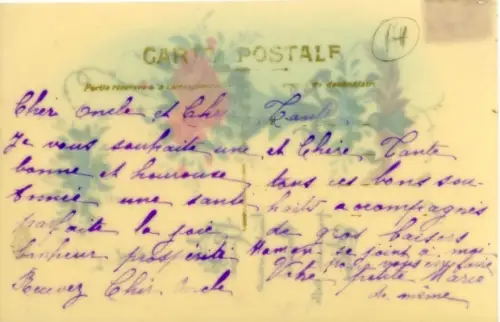 14
CARTE POSTALE
Cher oncle et Chère Tante
Je vous souhaite une
bonne et heureuse
Année une santé
parfaite la joie
bonheur prospérité
Recevez Cher Oncle
et Chère Tante
tous ces bons sou-
haits accompagnés
de gros baisers
Maman se joint à moi
pour vous en faire
Votre petite Marie
de même